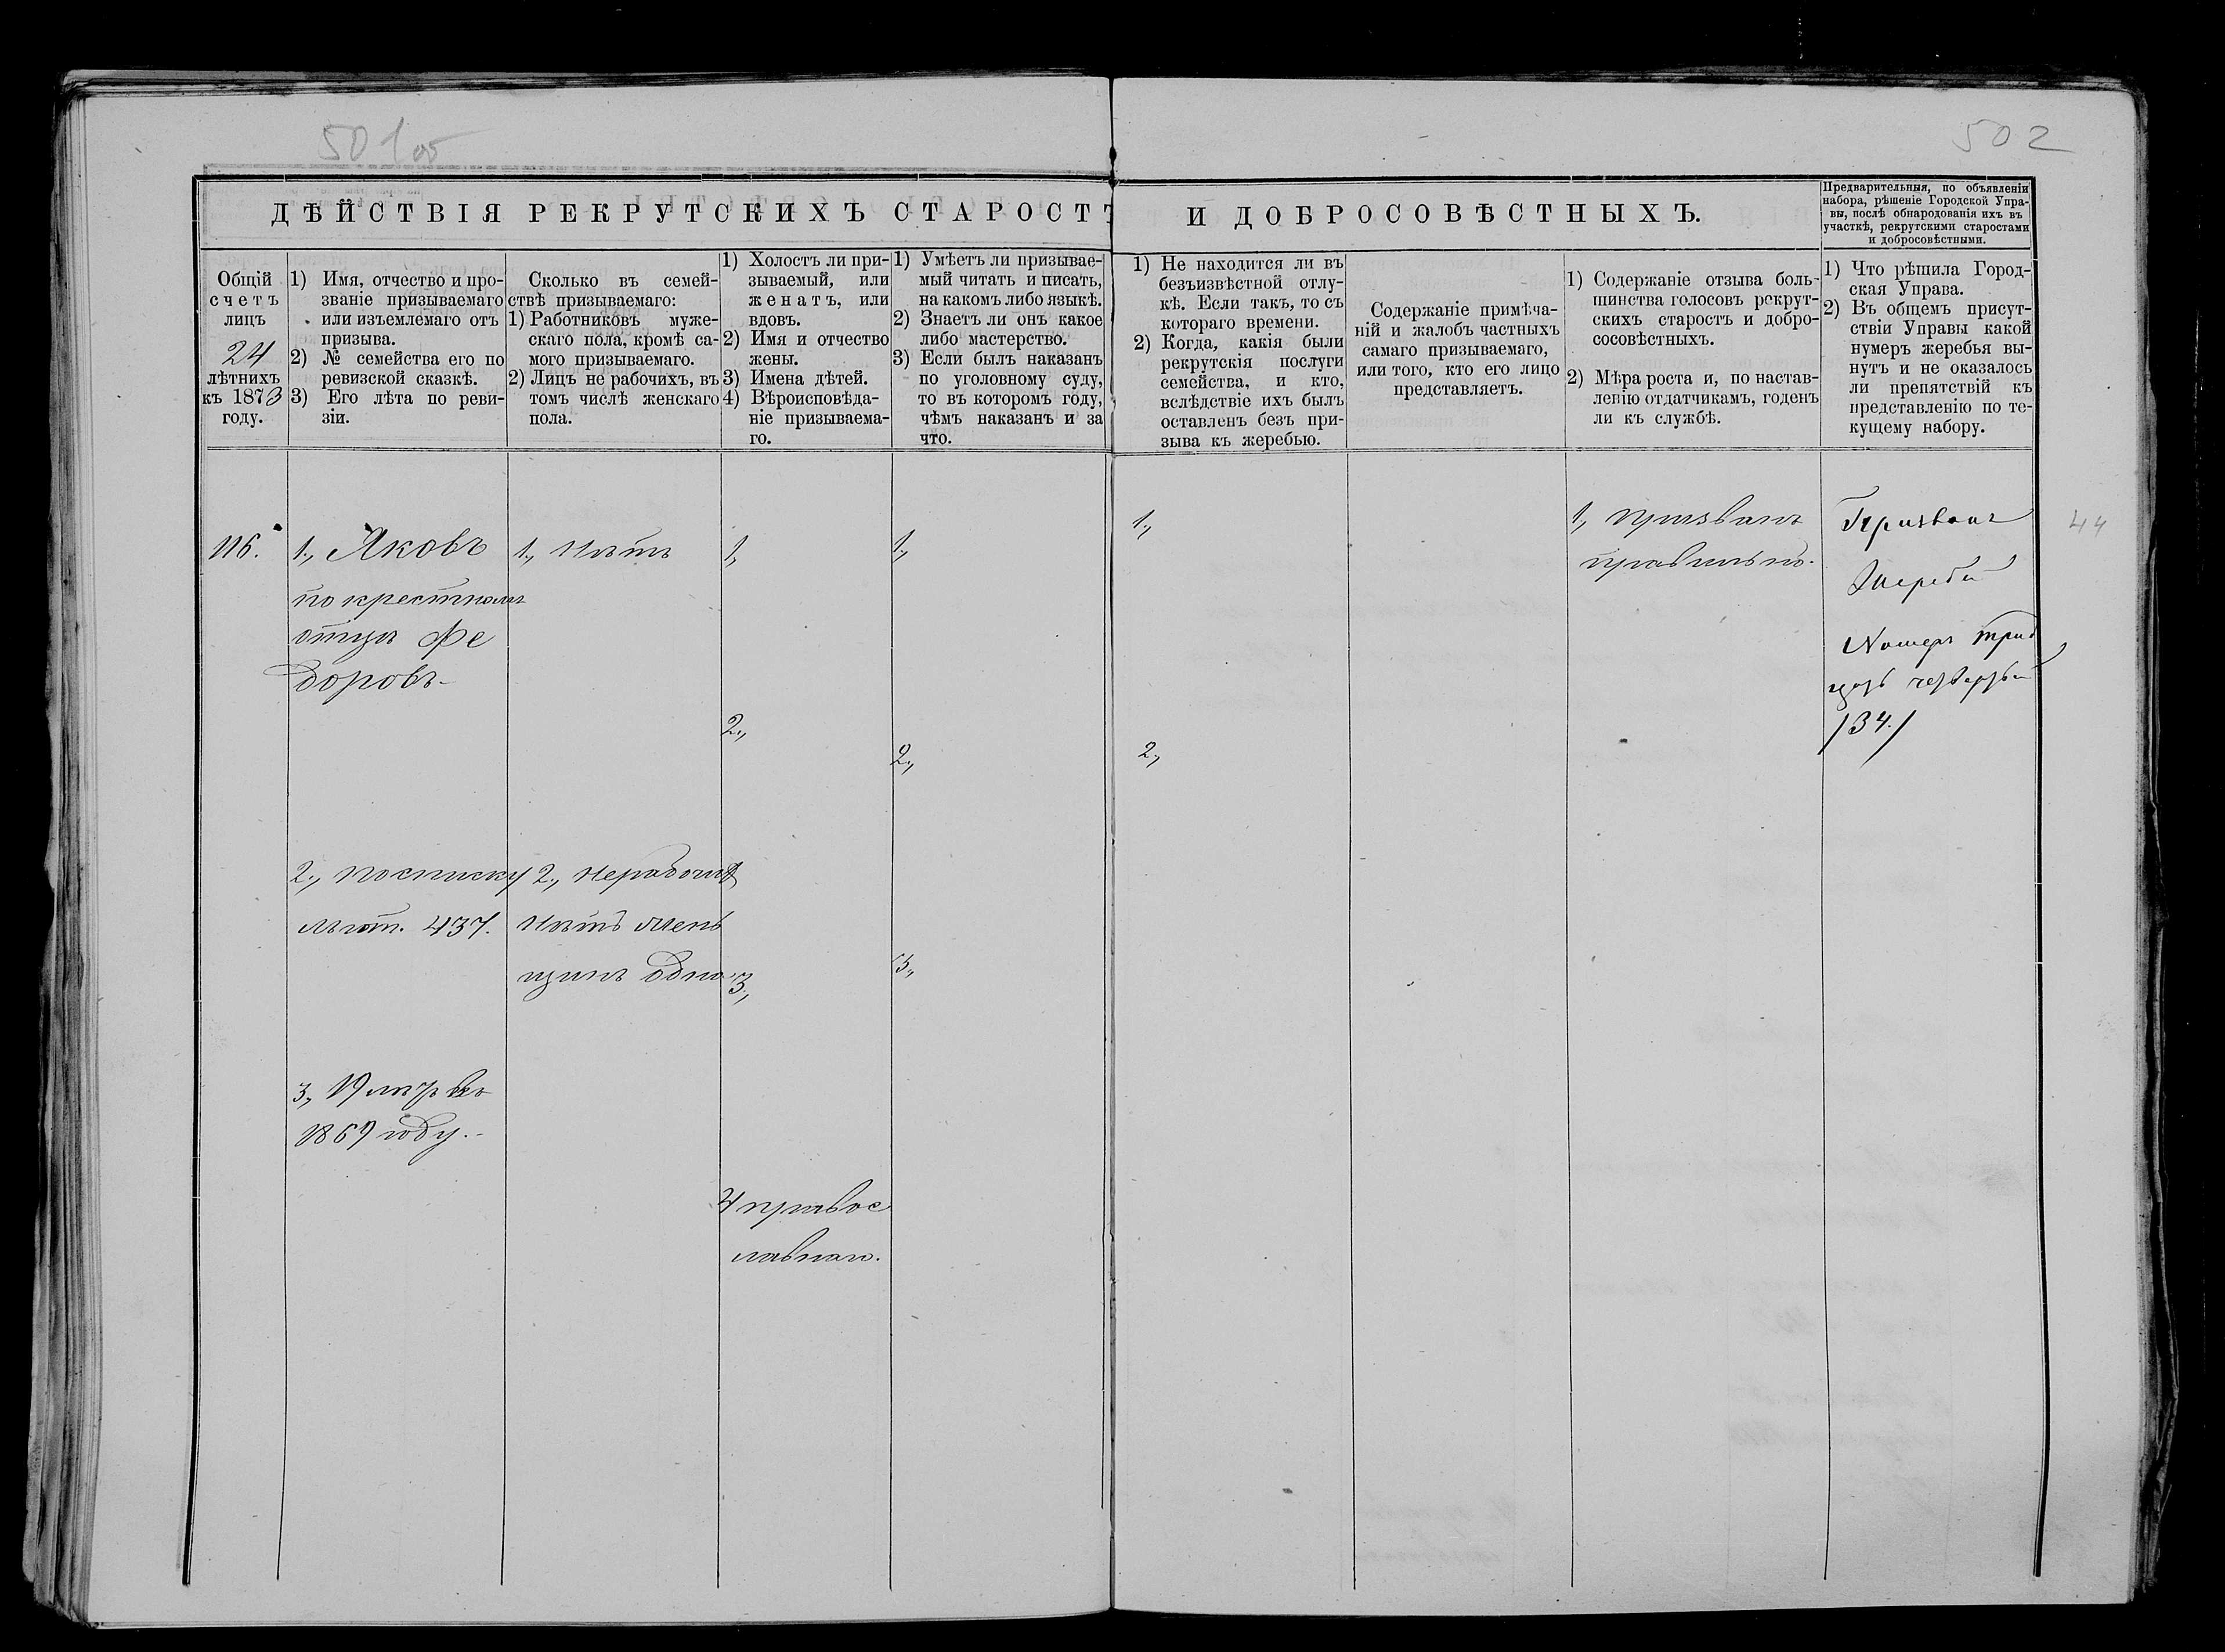 501об
502
ДѢЙСТВІЯ РЕКРУТСКИХЪ СТАРОСТЪ И ДОБРОСОВѢСТНЫХЪ.
Предварительныя, по объявленіи
набора, рѣшеніе Городской Упра-
вы, послѣ обнародованія ихъ въ
участкѣ, рекрутскими старостами
и добросовѣстными.
Общій
счетъ
лицъ
24
лѣтнихъ
къ 1873
году.
1) Имя, отчество и про-
званіе призываемаго
или изъемлемаго отъ
призыва.
2) № семейства его по
ревизской сказкѣ.
3) Его лѣта по реви-
зіи.
Сколько въ семей-
ствѣ призываемаго:
1) Работниковъ муже-
скаго пола, кромѣ са-
мого призываемаго.
2) Лицъ не рабочихъ, въ
томъ числѣ женскаго
пола.
1) Холостъ ли при-
зываемый, или
женатъ, или
вдовъ.
2) Имя и отчество
жены.
3) Имена дѣтей.
4) Вѣроисповѣда-
ніе призываема-
го.
1) Умѣетъ ли призывае-
мый читать и писать,
на какомъ либо языкѣ.
2) Знаетъ ли онъ какое
либо мастерство.
3) Если былъ наказанъ
по уголовному суду,
то въ которомъ году,
чѣмъ наказанъ и за
что.
1) Не находится ли въ
безъизвѣстной отлу-
кѣ. Если такъ, то съ
котораго времени.
2) Когда, какія были
рекрутскія послуги
семейства, и кто,
вслѣдствіе ихъ былъ
оставленъ безъ при-
зыва къ жеребью.
Содержаніе примѣча-
ній и жалобъ частныхъ
самаго призываемаго,
или того, кто его лицо
представляетъ.
1) Содержаніе отзыва боль-
шинства голосовъ рекрут-
скихъ старостъ и добро-
сосовѣстныхъ.
2) Мѣра роста и, по настав-
ленію отдатчикамъ, годенъ
ли къ службѣ.
1) Что рѣшила Город-
ская Управа.
2) Въ общемъ присут-
ствіи Управы какой
нумеръ жеребья вы-
нутъ и не оказалось
ли препятствій къ
представленію по те-
кущему набору.
116.
1., Яковъ
по крестномъ
отцѣ Фе
доровъ-
2., по списку
льгот. 437.
3., 19 лѣтъ въ
1869 году.-
1., Нѣтъ
2., Нерабочихъ
Нѣтъ жен
щинъ одна
1,
2.,
3.,
4 правос
лавнаго.
1.,
2.,
3.,
1.,
2.,
1., Призванъ
правильно.
Призванъ
Жребій
Номеръ трид
цать четвертый
/34./
44